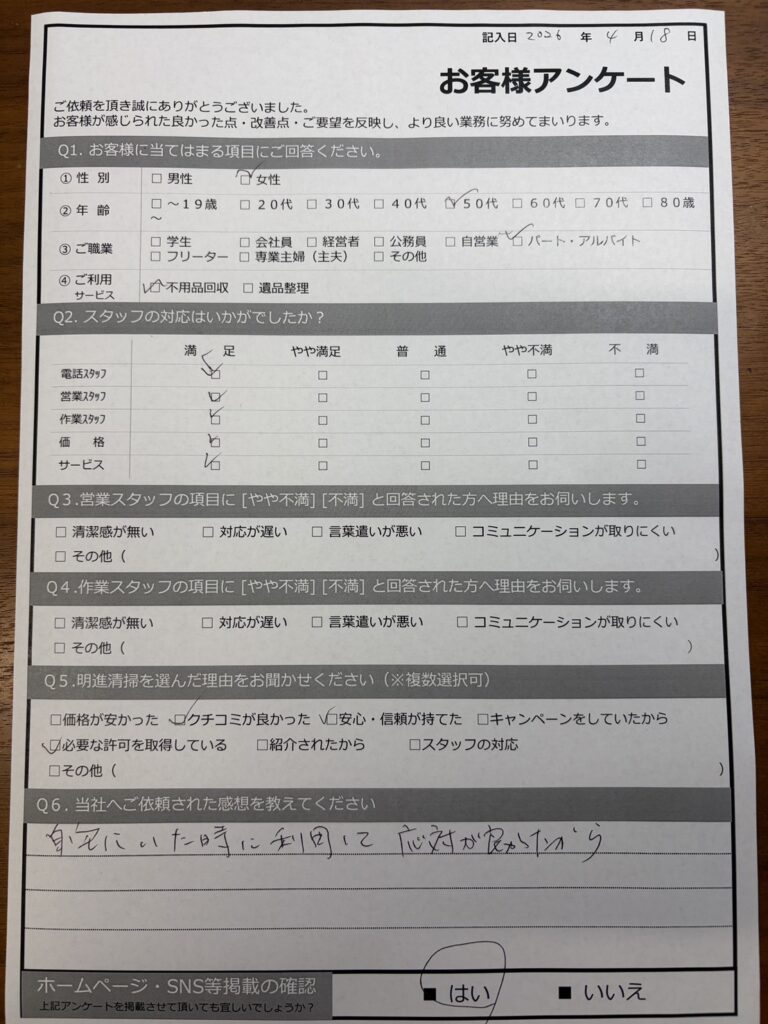 記入日 2026 年 4 月 18 日
お客様アンケート
ご依頼を頂き誠にありがとうございました。
お客様が感じられた良かった点・改善点・ご要望を反映し、より良い業務に努めてまいります。
Q1. お客様に当てはまる項目にご回答ください。
① 性 別 □ 男性 □ 女性
② 年 齢 □ ~19歳 □ 20代 □ 30代 □ 40代 □ 50代 □ 60代 □ 70代 □ 80歳
~
③ ご職業 □ 学生 □ 会社員 □ 経営者 □ 公務員 □ 自営業 □ パート・アルバイト
□ フリーター □ 専業主婦(主夫) □ その他
④ ご利用 □ 不用品回収 □ 遺品整理
サービス
Q2. スタッフの対応はいかがでしたか?
満 足 やや満足 普 通 やや不満 不 満
電話スタッフ □ □ □ □ □
営業スタッフ □ □ □ □ □
作業スタッフ □ □ □ □ □
価 格 □ □ □ □ □
サービス □ □ □ □ □
Q3.営業スタッフの項目に [やや不満] [不満] と回答された方へ理由をお伺いします。
□ 清潔感が無い □ 対応が遅い □ 言葉遣いが悪い □ コミュニケーションが取りにくい
□ その他 ( )
Q4.作業スタッフの項目に [やや不満] [不満] と回答された方へ理由をお伺いします。
□ 清潔感が無い □ 対応が遅い □ 言葉遣いが悪い □ コミュニケーションが取りにくい
□ その他 ( )
Q5.明進清掃を選んだ理由をお聞かせください(※複数選択可)
□価格が安かった □クチコミが良かった □安心・信頼が持てた □キャンペーンをしていたから
□必要な許可を取得している □紹介されたから □スタッフの対応
□その他 ( )
Q6. 当社へご依頼された感想を教えてください
自宅にいた時に利用して 応対が良かったから
ホームページ・SNS等掲載の確認
上記アンケートを掲載させて頂いても宜しいでしょうか?
■ はい ■ いいえ